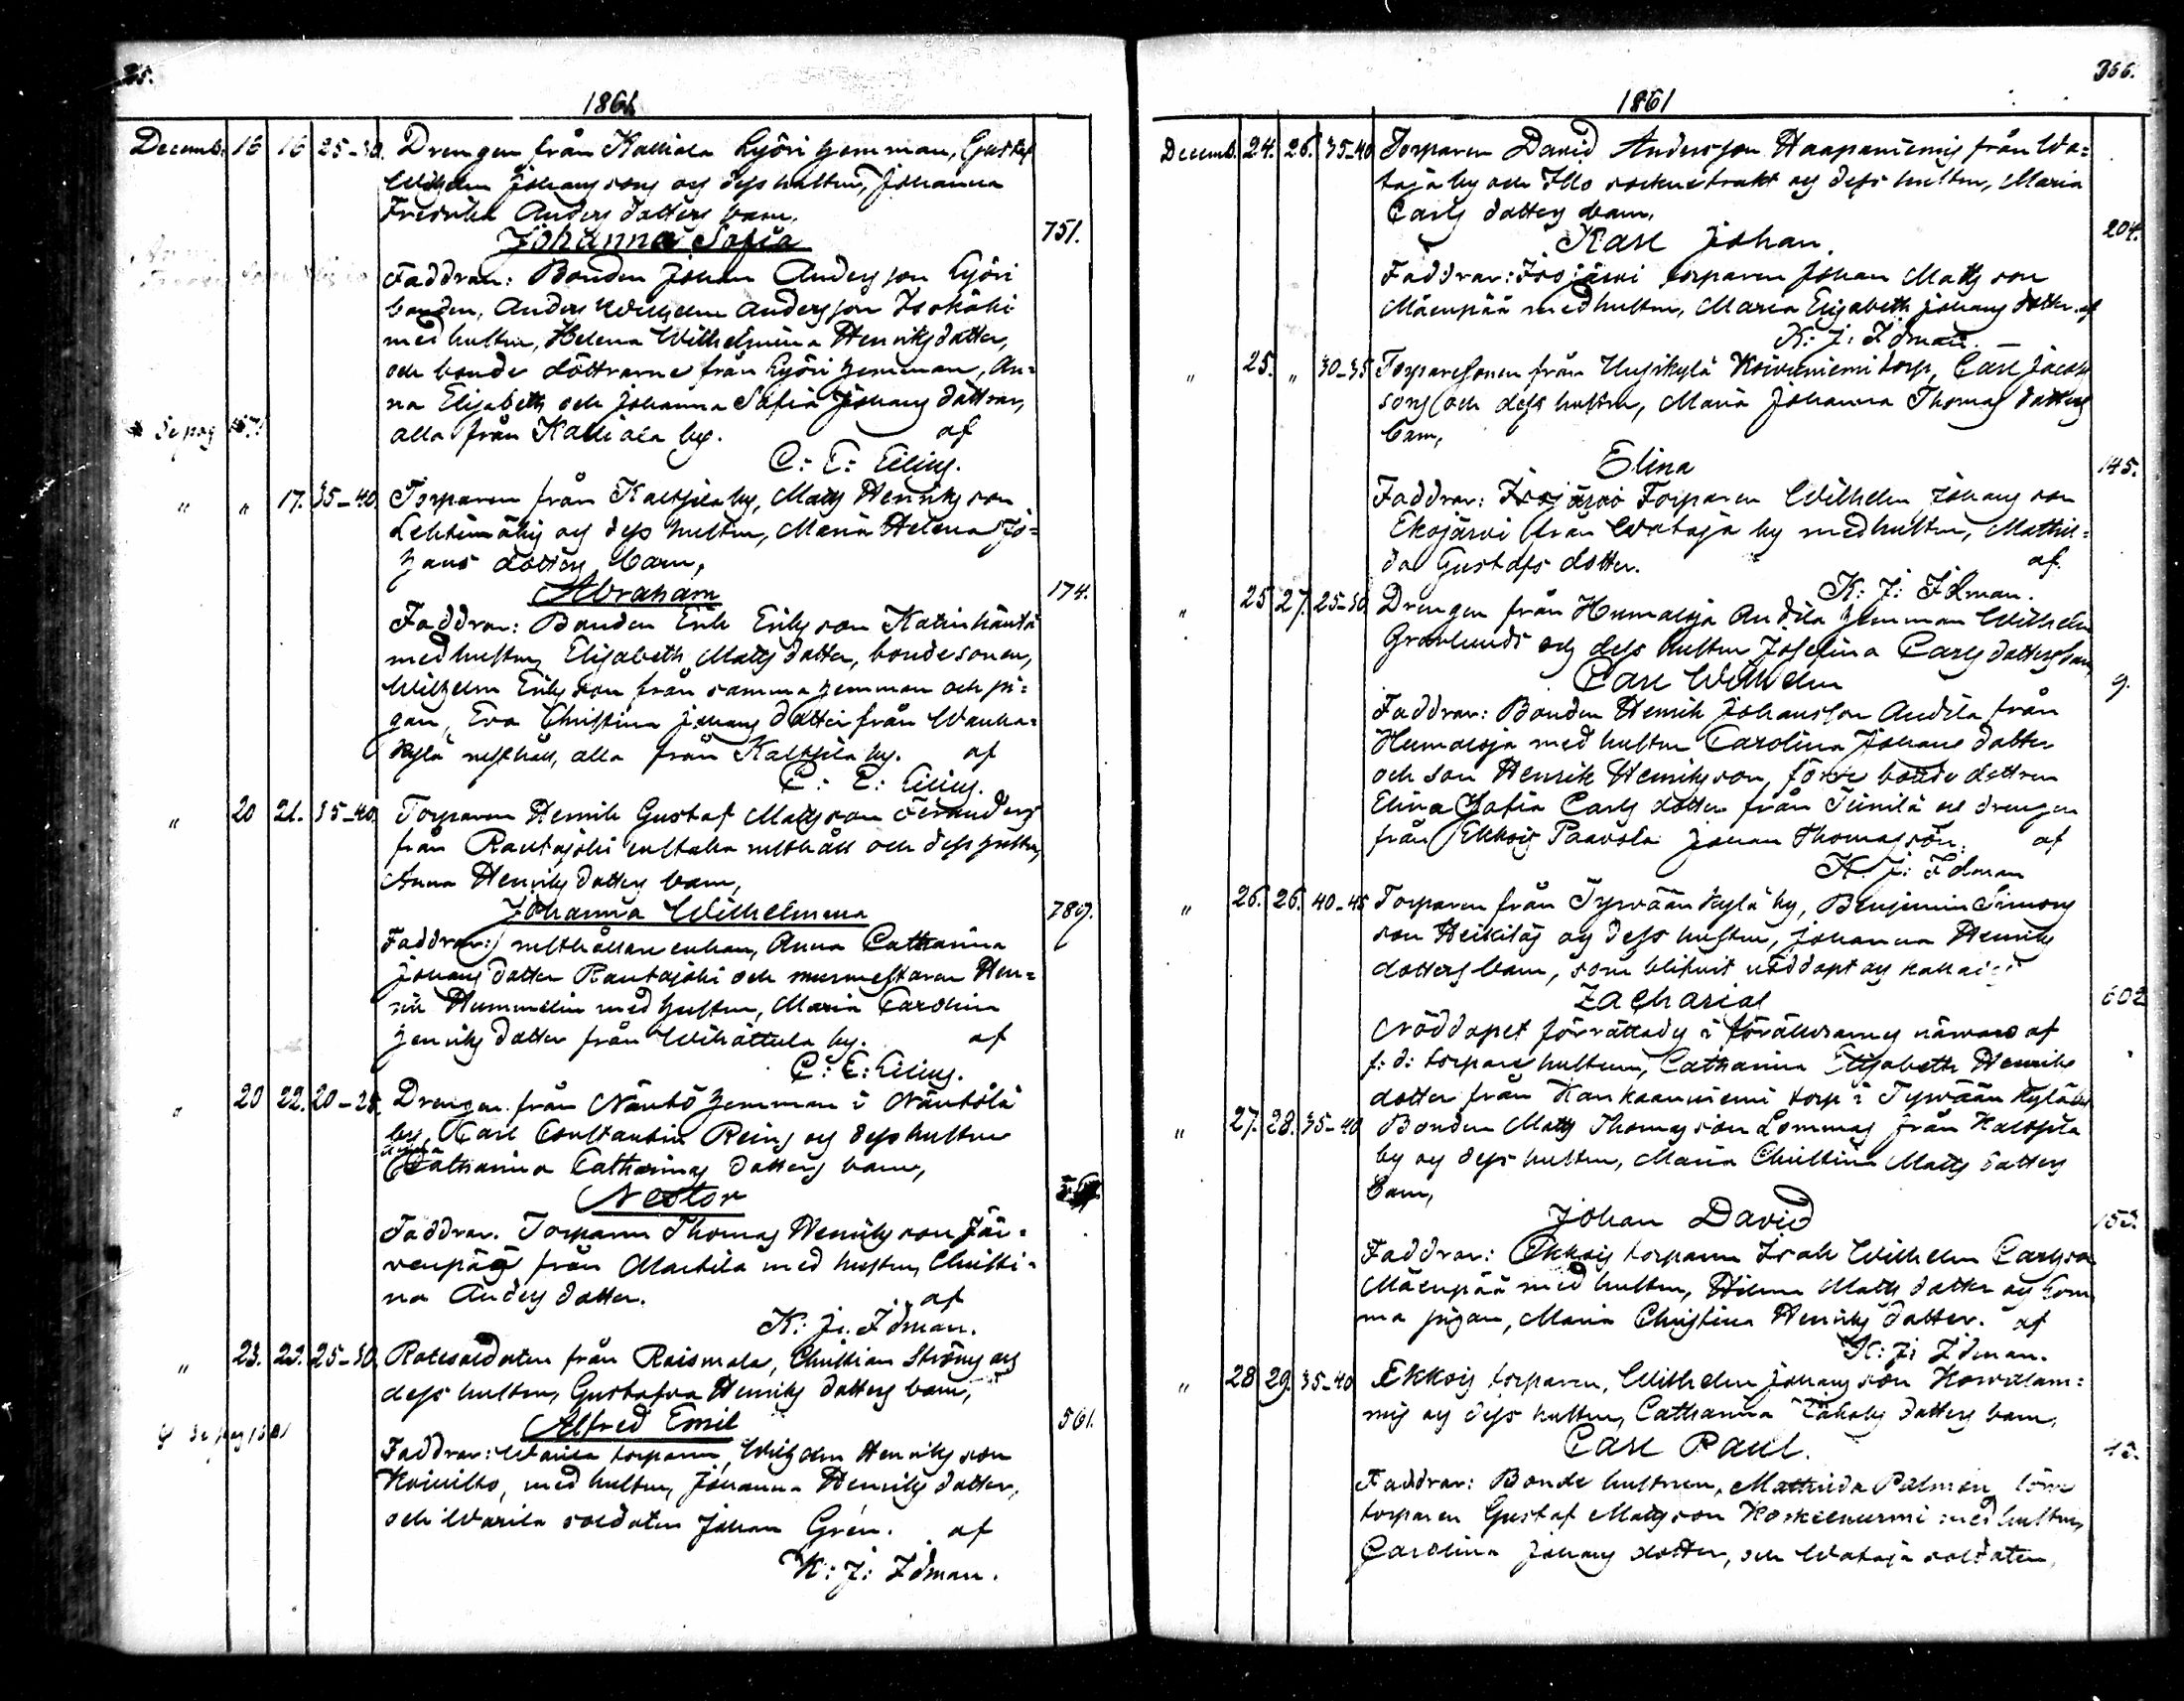 1861
Decemb. 16 16 25-30. Drengen från Kalliala Lyöri hemman, Gustaf
Wilhelm Johansson och dess hustru, Johanna
Fredrika Anders dotters barn,
Johanna Sofia 751.
Faddrar: Bonden Johan Andersson Lyöri
bonden, Anders Wilhelm Andersson Isokäki
med hustru, Helena Wilhelmina Henriks dotter,
och bonde döttrarne från Lyöri hemman, An=
na Elisabeth och Johanna Sofia Johans döttrar,
alla från Kalliala by. af
C: E: Eilius.
" " 17. 35-40. Torparen från Kaltsila by, Matts Henriks son
Lehtimäki och dess hustru, Maria Helena Jo=
hans dotters barn,
Abraham 174.
Faddrar: Bonden Erik Eriks son Katinhäntä
med hustru, Elisabeth Matts dotter, bondesonen,
Wilhelm Eriks son från samma hemman och pi=
gan, Eva Christina Johans dotter från Wanha=
kylä rusthåll, alla från Kaltsila by. af
C: E: Eilius.
" 20 21. 35-40. Torparen Henrik Gustaf Mattsson
från Rautajoki rusthåll och dess hustru,
Anna Henriks dotters barn,
Johanna Wilhelmina 789.
Faddrar: rusthållare enkan, Anna Catharina
Johans dotter Rautajoki och murmestaren Hen=
rik Hummelin med hustru, Maria Carolina
Henriks dotter från Wihattula by. af
C: E: Eilius.
" 20 22. 20-25. Drengen från Näntö hemman i Näntölä
by, Carl Constantin Rein, och dess hustru
Anna
Catharina dotters barn,
Nestor
Faddrar. Torparen Thomas Henriks son Jär=
venpää från Martila med hustru, Christi=
na Anders dotter. af
K: J: Idman.
" 23. 23. 25-30. Rotesoldaten från Roismala, Christian Ströms och
dess hustru, Gustafva Henriks dotters barn,
Alfred Emil 561.
Faddrar: Warila torparen, Wilhelm Henriks son
Koivisto, med hustru, Johanna Henriks dotter,
och Warila soldaten Johan Grén. af
K: J: Idman.
366.
1861
Decemb. 24. 26. 35-40 Torparen David Andersson Haapaniemis från Wa=
taja by och Illo sockne trakt och dess hustru, Maria
Carls dotters barn,
Karl Johan. 204.
Faddrar: Isojärvi torparen Johan Matts son
Mäenpää med hustru, Maria Elisabeth Johans dotter. af
K: J: Idman.
" 25. " 30-35 Torparesonen från Huppikylä Koivuniemi torp, Carl Jacobs
sons och dess hustru, Maria Johanna Thomas dotters
barn,
Elina 145.
Faddrar: Isojärvi Torparen Wilhelm Johans son
Ekojärvi från Wataja by med hustru, Mathil=
da Gustafs dotter. af
K: J: Idman.
" 25 27. 25-30 Drengen från Humaloja Andila hemman Wilhelm
Grönlunds och dess hustru Josefina Carls dotters barn,
Carl Wilhelm 9.
Faddrar: Bonden Henrik Johansson Andila från
Humaloja med hustru Carolina Johans dotter
och son Henrik Henriksson, förre bonde dottren
Elina Sofia Carls dotter från Tiinilä och drengen
från Ekkois Paavola Johan Thomas son. af
K. J: Idman
" 26. 26. 40-45 Torparen från Tyrvään kylä by, Benjamin Simons
son Heikiläs och dess hustru, Johanna Henriks
dotters barn, som blifvit nöddöpt och kallad
Zacharias 602
Nöddopet förrättades i föräldrarnes närvaro af
f: d: torpare hustrun, Catharina Elisabeth Henriks
dotter från Kankaanniemi torp i Tyrvään kylä by
" 27. 28. 35-40 Bonden Matts Thomas son Lommas från Kaltsila
by och dess hustru, Maria Christina Matts dotters
barn,
Johan David
Faddrar: Ekkois torparen Isak Wilhelm Carlsson
Mäenpää med hustru, Helena Matts dotter och
pigan, Maria Christina Henriks dotter. af
K: J: Idman.
" 28 29. 35-40 Ekkois torparen, Wilhelm Johans son
och dess hustru, Catharina Jakobs dotters barn,
Carl Paul.
Faddrar: Bonde hustrun, Mathilda Palman
torparen Gustaf Matts son Koskeenurmi med hustru,
Carolina Johans dotter, och Wataja soldaten,